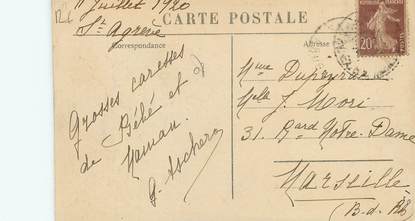 11 Juillet 1920
St Agrève
CARTE POSTALE
Correspondance
Grosses caresses
de Bébé et
Maman.
G. Aschero
Adresse
RÉPUBLIQUE FRANÇAISE
20c
Mme Dupeyrac
Mlle J. Mori
31. Bard Notre-Dame
Marseille
(B.-d. Rh)